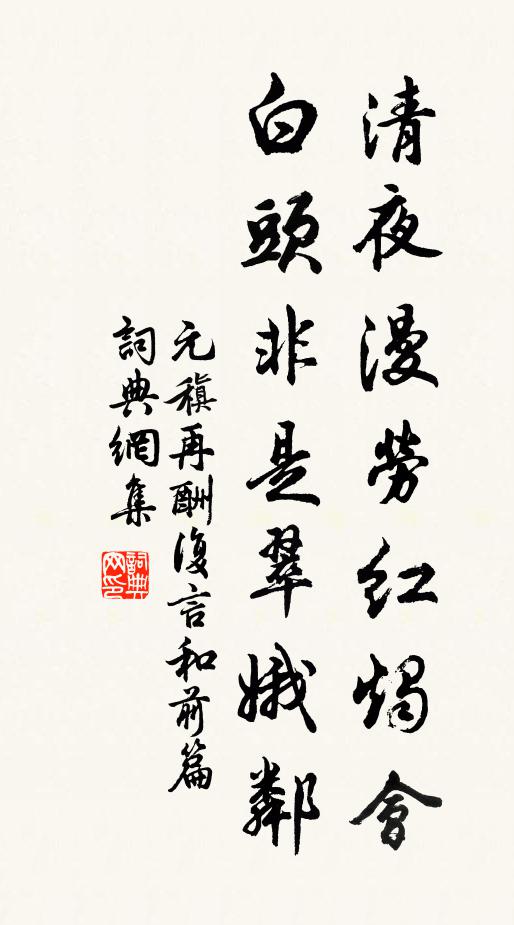 清夜漫勞紅燭會
白頭非是翠娥鄰
元稹再酬復言和前篇
詞典網集
詞典網印